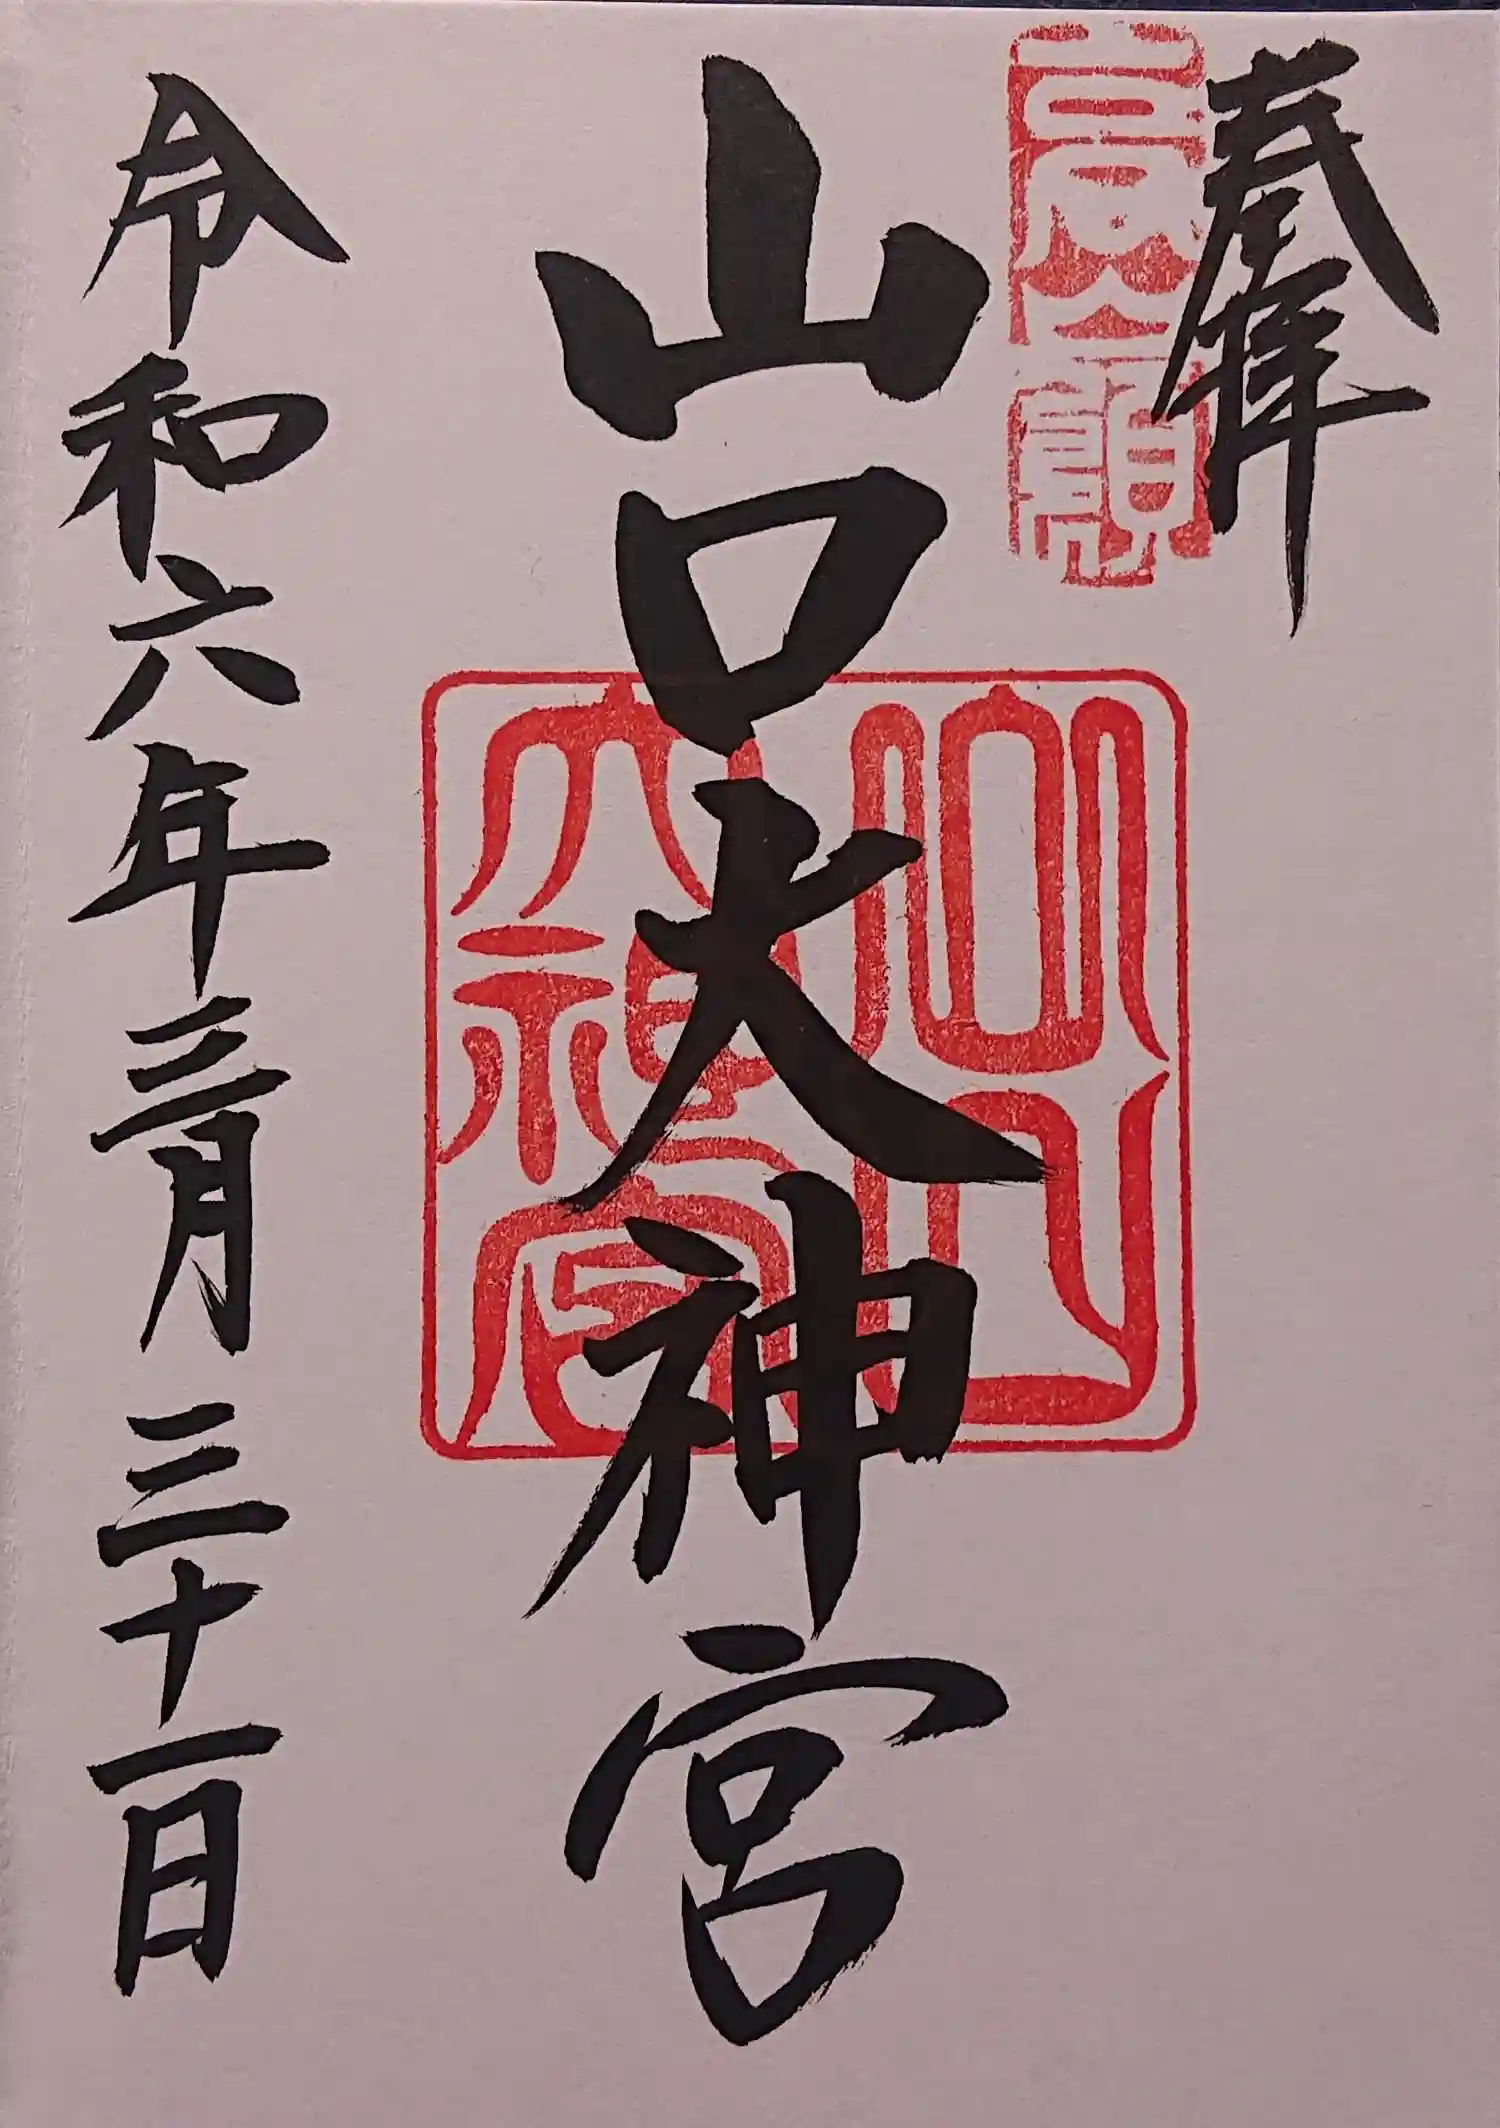 奉拝
山口大神宮
山口大神宮
令和六年三月三十一日